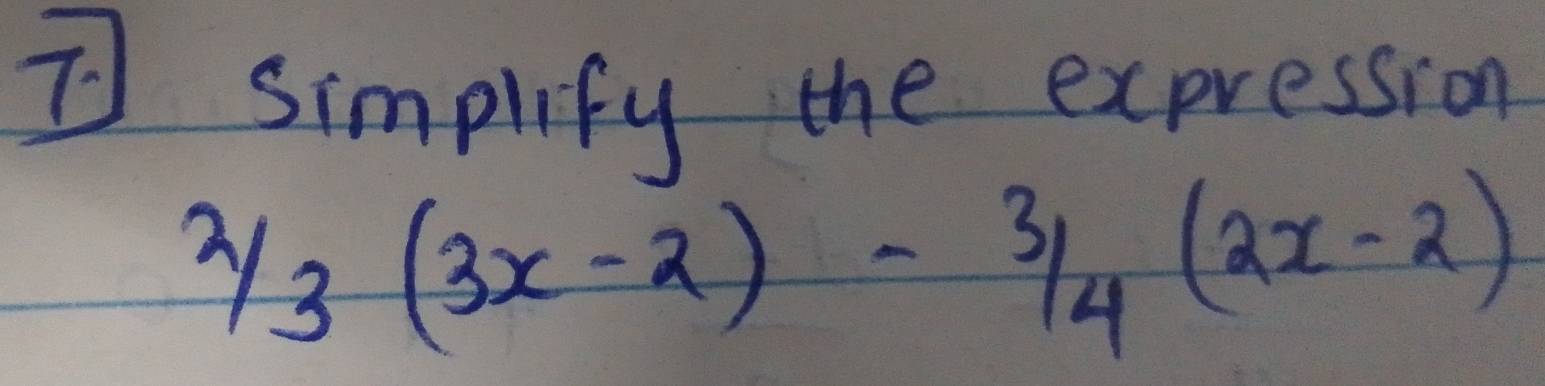 7.] Simplify the expression
2/3 (3x - 2) - 3/4 (2x - 2)